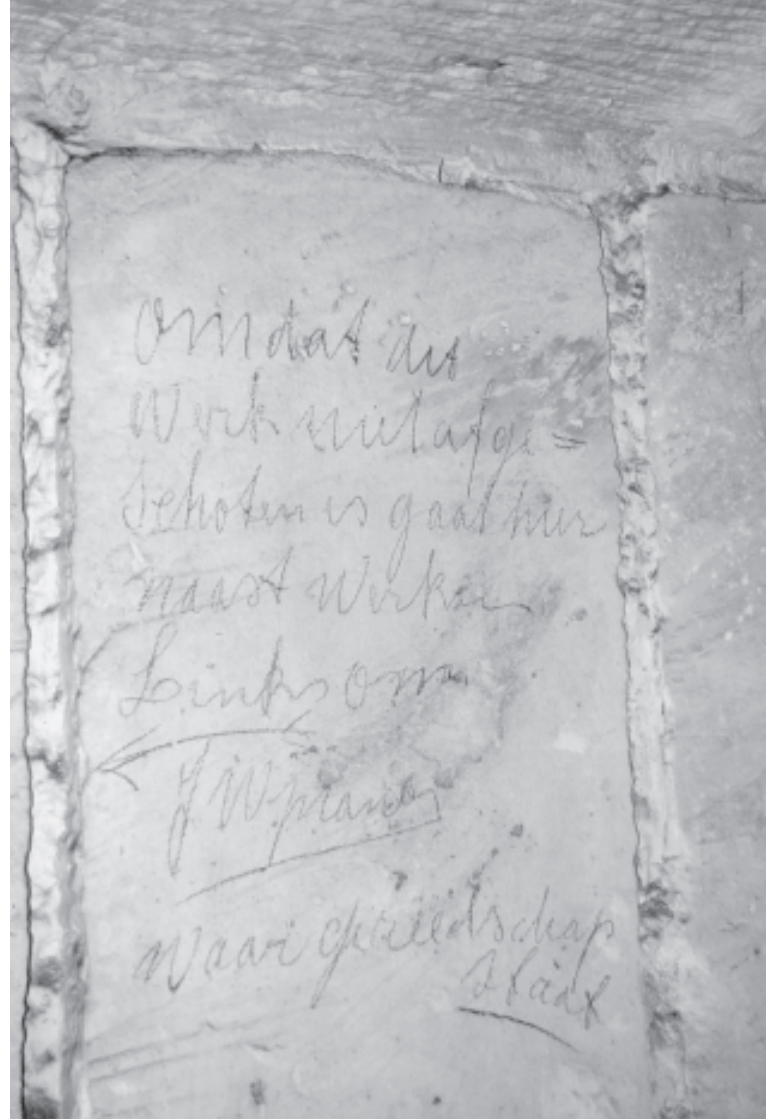 Omdat dit
Werk niet afge=
schoten is gaat hier
naast Werken
Links om
waar gereedschap
staat